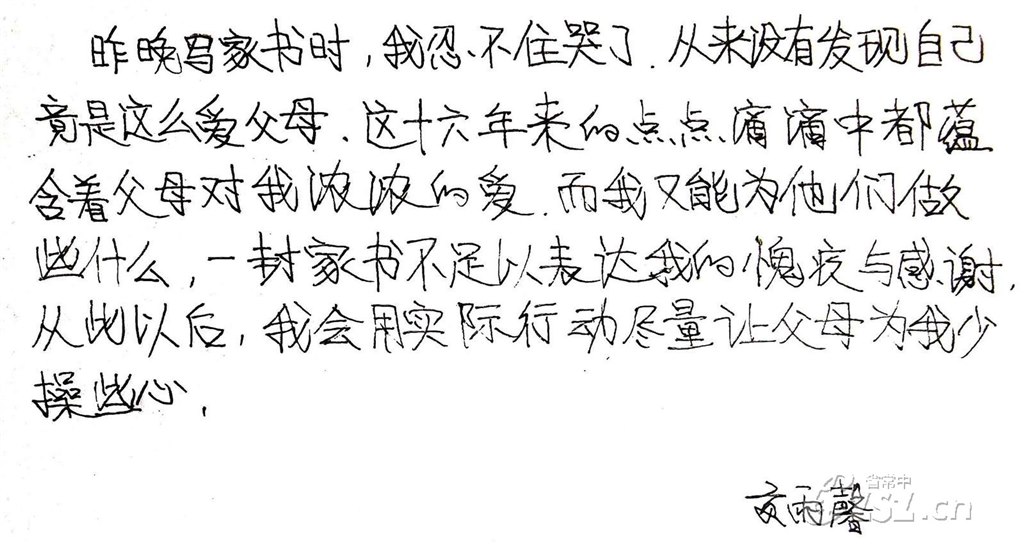 昨晚写家书时,我忍不住哭了.从来没有发现自己
竟是这么爱父母.这十六年来的点点滴滴中都蕴
含着父母对我浓浓的爱.而我又能为他们做
些什么,一封家书不足以表达我的愧疚与感谢.
从此以后,我会用实际行动尽量让父母为我少
操些心.
雨馨
省常中
.cn